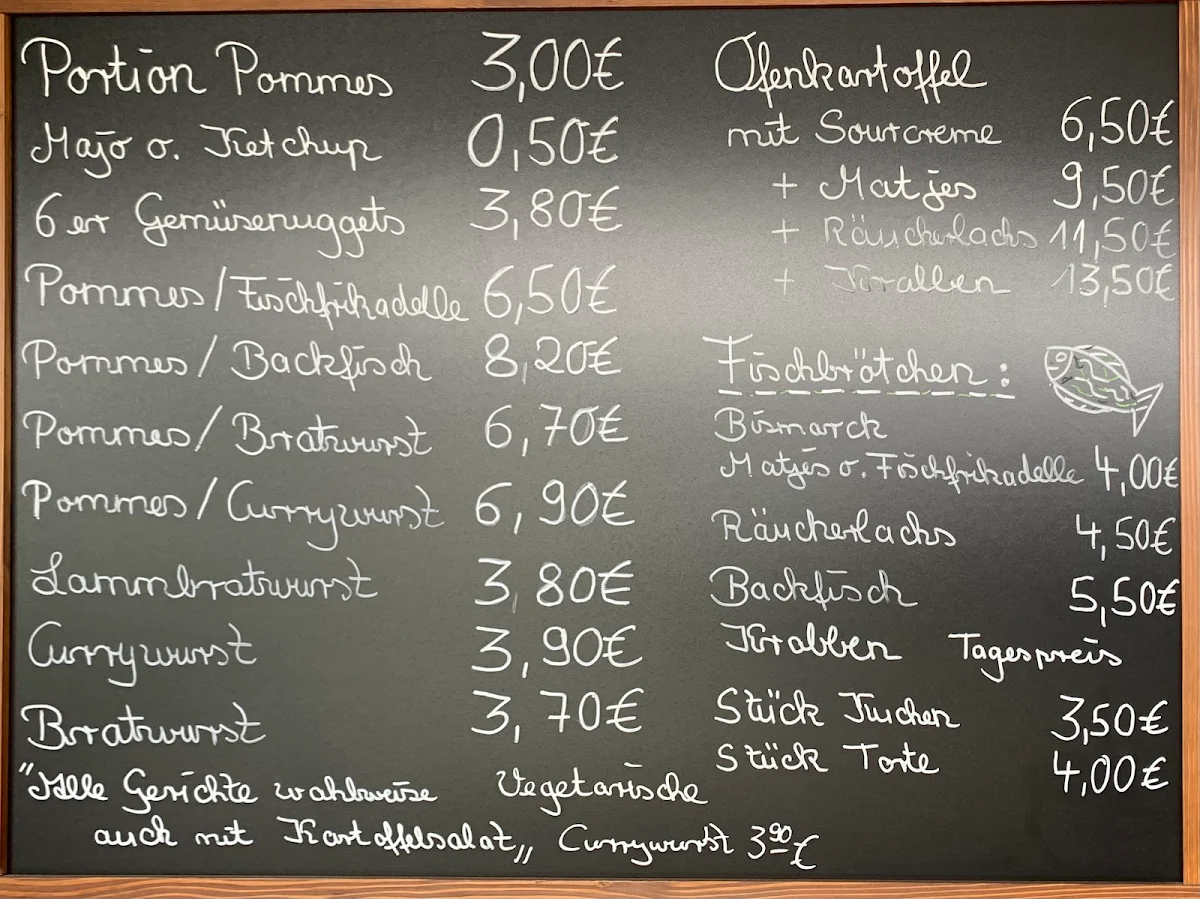 Portion Pommes 3,00€
Majo o. Ketchup 0,50€
6er Gemüsenuggets 3,80€
Pommes/Fischfrikadelle 6,50€
Pommes/Backfisch 8,20€
Pommes/Bratwurst 6,70€
Pommes/Currywurst 6,90€
Lammbratwurst 3,80€
Currywurst 3,90€
Bratwurst 3,70€
"Alle Gerichte wahlweise
auch mit Kartoffelsalat„
Vegetarische
Currywurst 3,90€
Ofenkartoffel
mit Sourcreme 6,50€
+ Matjes 9,50€
+ Räucherlachs 11,50€
+ Krabben 13,50€
Fischbrötchen:
Bismarck
Matjes o. Fischfrikadelle 4,00€
Räucherlachs 4,50€
Backfisch 5,50€
Krabben Tagespreis
Stück Kuchen 3,50€
Stück Torte 4,00€